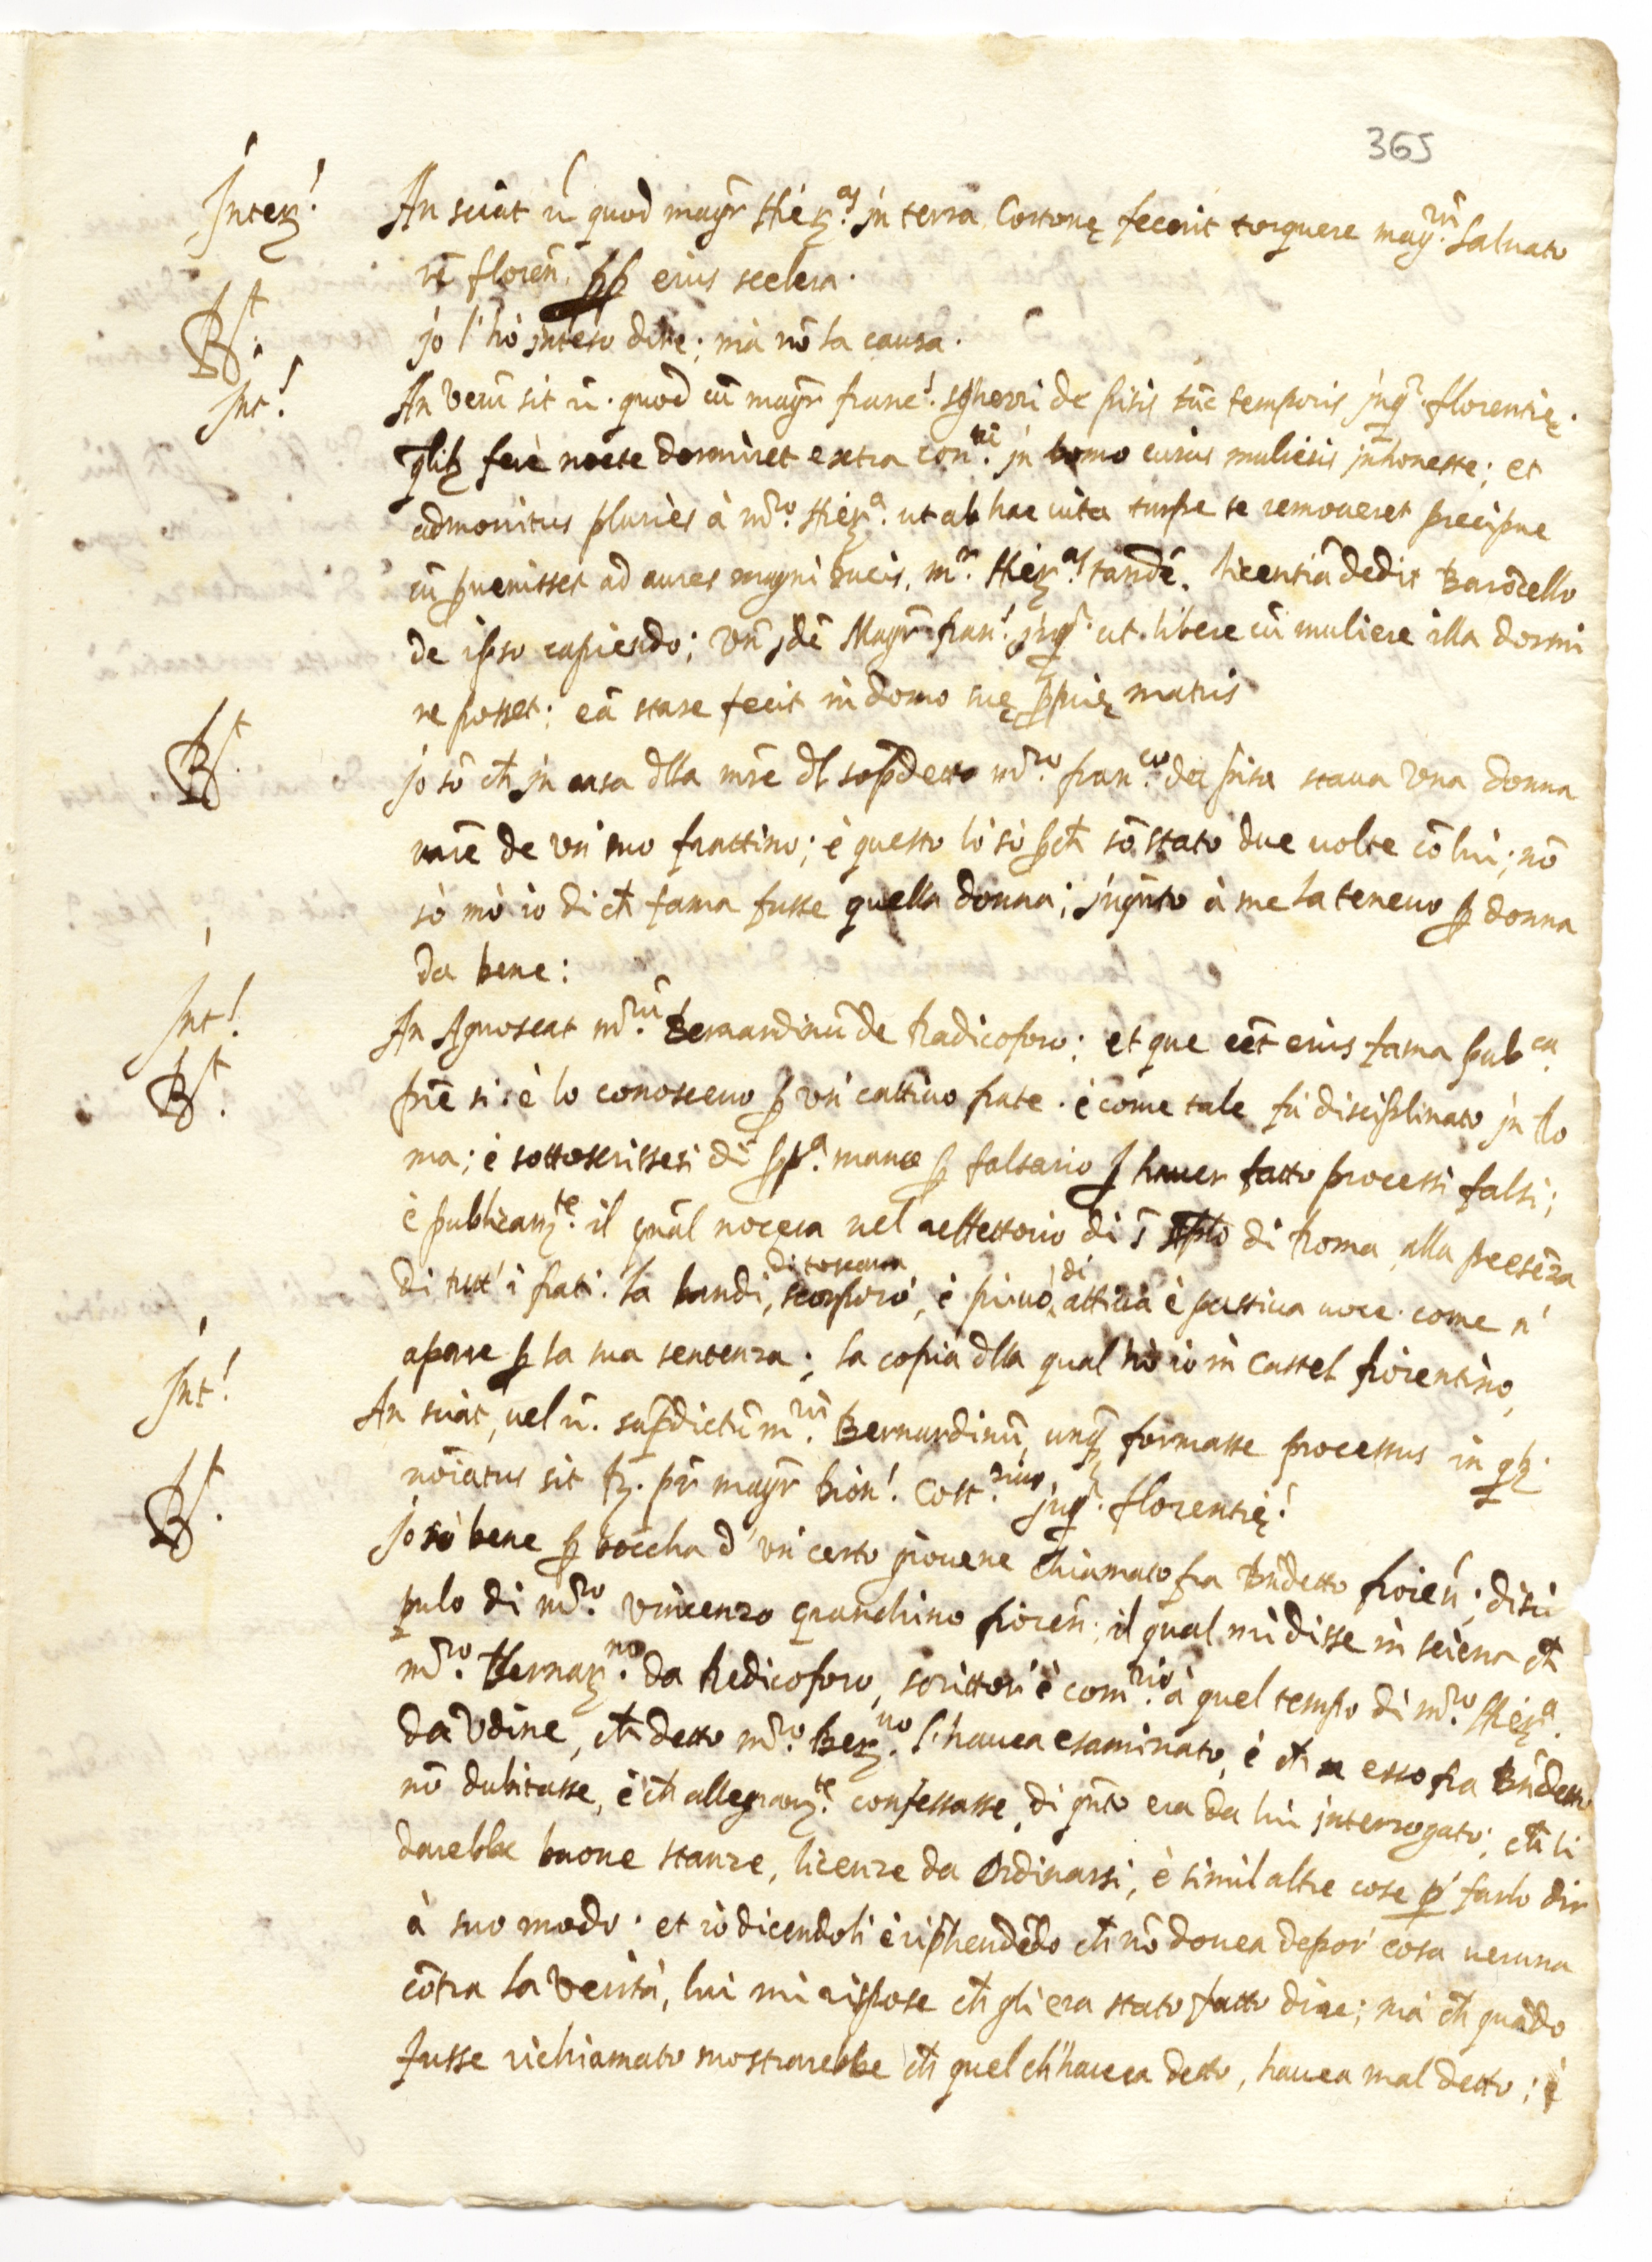 365
Inter! An sciat ñ quod magr̃ Hierᵃˢ. in terra Cortonę fecerit torquere magʳᵘ̃. Saluato
rẽ floreñ. pp eius scelera.
Rᵗ. jo l'hò inteso dire; mà nõ la causa.
Int! An verũ sit ñ. quod cũ magr̃ franc! sgherri de pisis tũc temporis jnqʳ. florentię.
qlibʒ ferè nocte dormiret extra conᵗũ. jn domo cuius mulieris jnhoneste; et
admonitus pluriès à mr̃o. Hierᵃ. ut ab hac uita turpe se remoueret precipue
cũ puenisset ad aures magni Ducis. mʳ. Hierᵃˢ. tandẽ. licentiã dedit Barõcello
de ipso capiendo; vñ jdẽ Magr̃ fran! jnqʳ. ut libere cũ muliere illa dormi
re posset; eã stare fecit in domo suę ppuię matris
Rᵗ. jo sõ ch̃ jn casa dlla mr̃e dl sopdetto mr̃o. franᶜᵒ. da pisa staua vna donna
mr̃e de vn suo frattino; è questo lò sò pch̃ sõ stato due uolte cõ lui; nõ
sò mò io di ch̃ fama fusse quella donna; jnqũto à me la teneuo p donna
da bene:
Int! An Agnoscat mʳᵘ̃. Bernardinũ de Radicoforo; et que eẽt eius fama pubᶜᵃ.
Rᵗ. pr̃e si: è lo conosceuo p vn cattiuo frate. è come tale fù disciplinato jn Ro
ma; è sottoscrissesi di ppᵃ. mano p falsario p hauer fatto processi falsi;
è publicamᵗᵉ. il qual nocera nel reffettorio di S. Apło di Roma alla presẽza
di tutt'i frati. la bandi, di toscana scorporò, è priuò, di attiua è passiua uoce come n'
apare p la sua sentenza; la copia dlla qual hò io in Castel fiorentino,
Int! An sciat, uel ñ. supdictũ mʳᵘ̃. Bernardinũ, unqʒ formasse processus in qbʒ.
nõiatus sit fʒ. pr̃ magr̃ Dion! Costᶻⁱᵘˢ jnqʳ. florentię!
Rᵗ. jo sò bene p boccha d'vn certo giouene chiamato fra Bñdetto fioreñ; disci
pulo di mr̃o. vincenzo granchino fioreñ; il qual mi disse in seiena ch̃
mr̃o. Bernarⁿᵒ. da Redicoforo, scrittor'è comʳⁱᵒ. à quel tempo di mr̃o. Hierᵃ.
da Vdine, ch̃ detto mr̃o. Berⁿᵒ. l'hauea esaminato, è ch̃ esso fra Bñdetto
nõ dubitasse, è ch̃ allegramᵗᵉ. confessasse, di qñto era da lui interrogato; ch̃ li
darebbe buone stanze, licenze da Ordinarsi, è simil altre cose p' farlo dir
à suo modo. et io dicendoli è riphendẽdo ch̃ nõ douea depor' cosa ueruna
cõtra la verità, lui mi rispose ch̃ gli era stato fatto dire; mà ch̃ quãdo
fusse richiamato mostrarebbe ch̃ quel ch'hauea detto, hauea mal detto; è